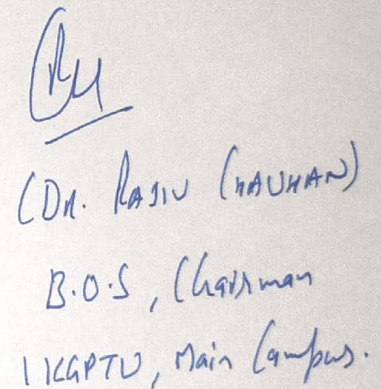 (DR. RAJIV CHAUHAN)
B.O.S, Chairman
IKGPTU, Main Campus.